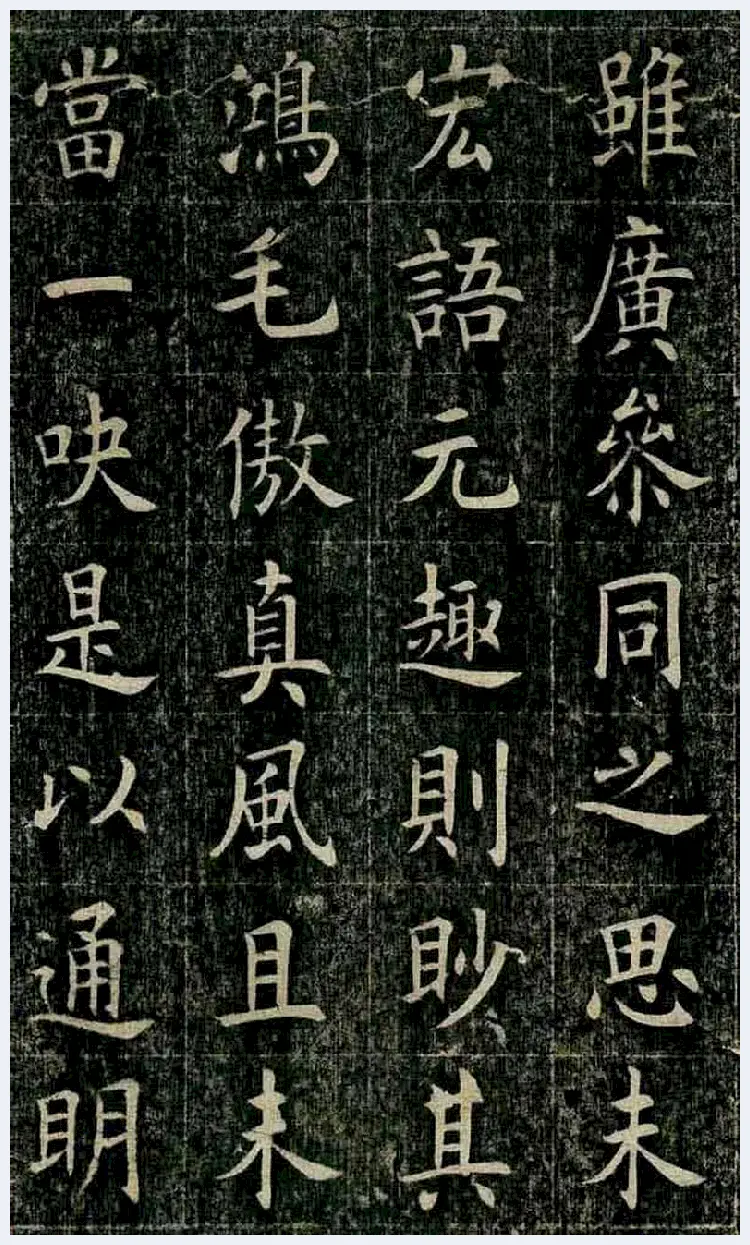 雖廣參同之思未
宏語元趣則眇其
鴻毛傲真風且未
當一吷是以通明